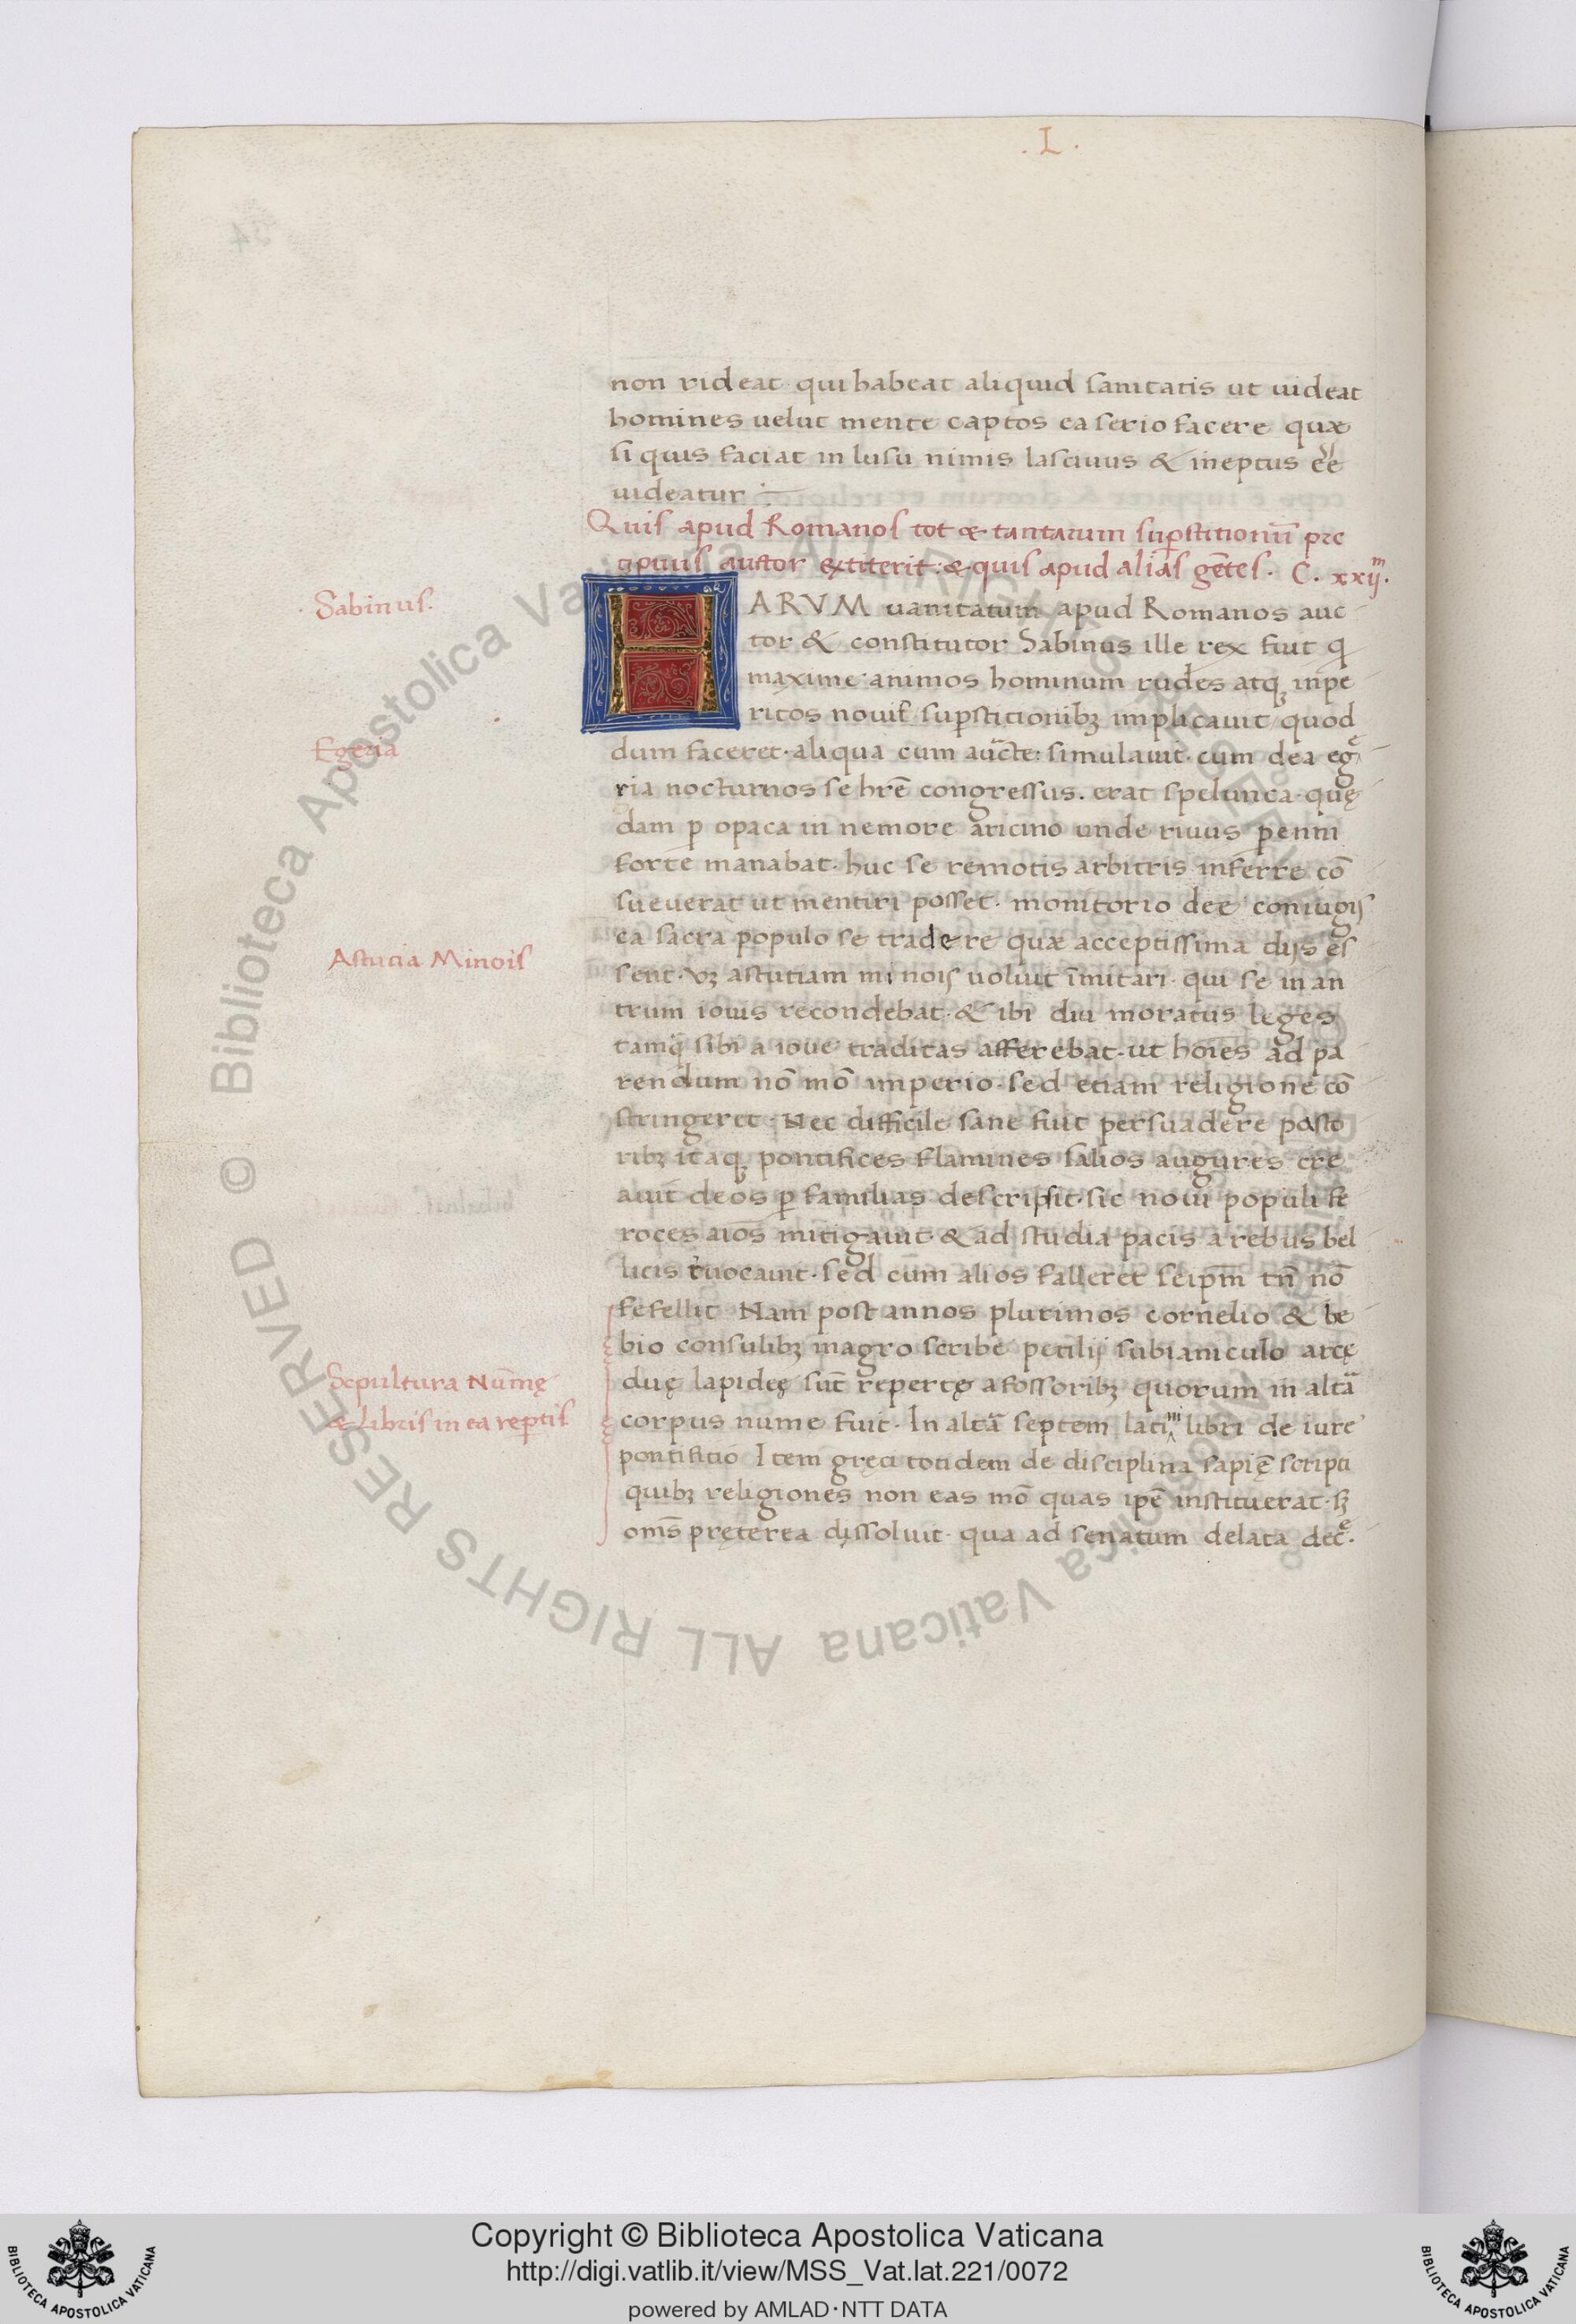 . I .
non rideat qui habeat aliquid sanitatis ut uideat
homines uelut mente captos ea serio facere quæ
si quis faciat in lusu nimis lasciuus & ineptus eē
uideatur
Quis apud Romanos tot & tantarum sup̄stitionū pre
cipuus auctor extiterit: & quis apud alias gētes. C. xxijᵐ.
Sabinus.
HARVM uanitatum apud Romanos auc
tor & constitutor Sabinus ille rex fuit q
maxime animos hominum rudes atq; inpe
ritos nouis sup̄stitionibꝫ implicauit quod
Egeria
dum faceret aliqua cum aucte: simulauit cum dea ege
ria nocturnos se hr̄e congressus. erat spelunca quę
dam p opaca in nemore aricino unde riuus penni
forte manabat. huc se remotis arbitris inferre cō
sueuerat ut mentiri posset. monitorio dee coniugis
ea sacra populo se tradere quæ acceptissima dijs es
Astucia Minois
sent. astutiam minois uoluit īmitari qui se in an
trum iouis recondebat & ibi diu moratus leges
tamq̄ sibi a ioue traditas afferebat. ut hoīes ad pa
rendum nō mō imperio sed etiam religione cō
stringeret. Nec difficile sane fuit persuadere pasto
ribꝫ itaq; pontifices flamines salios augures cre
auit deos p familias descripsit. sic noui populi fe
roces aīos mitigauit & ad studia pacis a rebus bel
licis reuocauit. sed cum alios falleret seipm̄ tn̄ nō
fefellit Nam post annos plurimos cornelio & be
bio consulibꝫ in agro scribe petilij sub ianiculo arcę
Sepultura Numę
& Libris in ea reptis.
duę lapideę sūt repertę a fossoribꝫ quorum in altā
corpus nume fuit. In altā septem latini libri de iure
pontificio Item gręci totidem de disciplina sapię scripti
quibꝫ religiones non eas mō quas ipē instituerat. sꝫ
om̄s pręterea dissoluit. qua ad senatum delata dece.
© Biblioteca Apostolica Vaticana ALL RIGHTS RESERVED
Copyright © Biblioteca Apostolica Vaticana
http://digi.vatlib.it/view/MSS_Vat.lat.221/0072
powered by AMLAD·NTT DATA
BIBLIOTECA APOSTOLICA VATICANA
BIBLIOTECA APOSTOLICA VATICANA